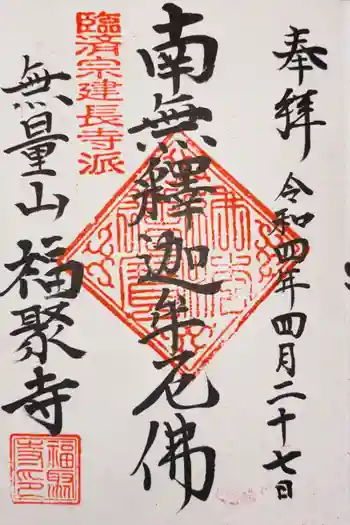 奉拝
令和四年四月二十七日
南無釋迦牟尼佛
臨済宗建長寺派
無量山
福聚寺
福聚
寺印